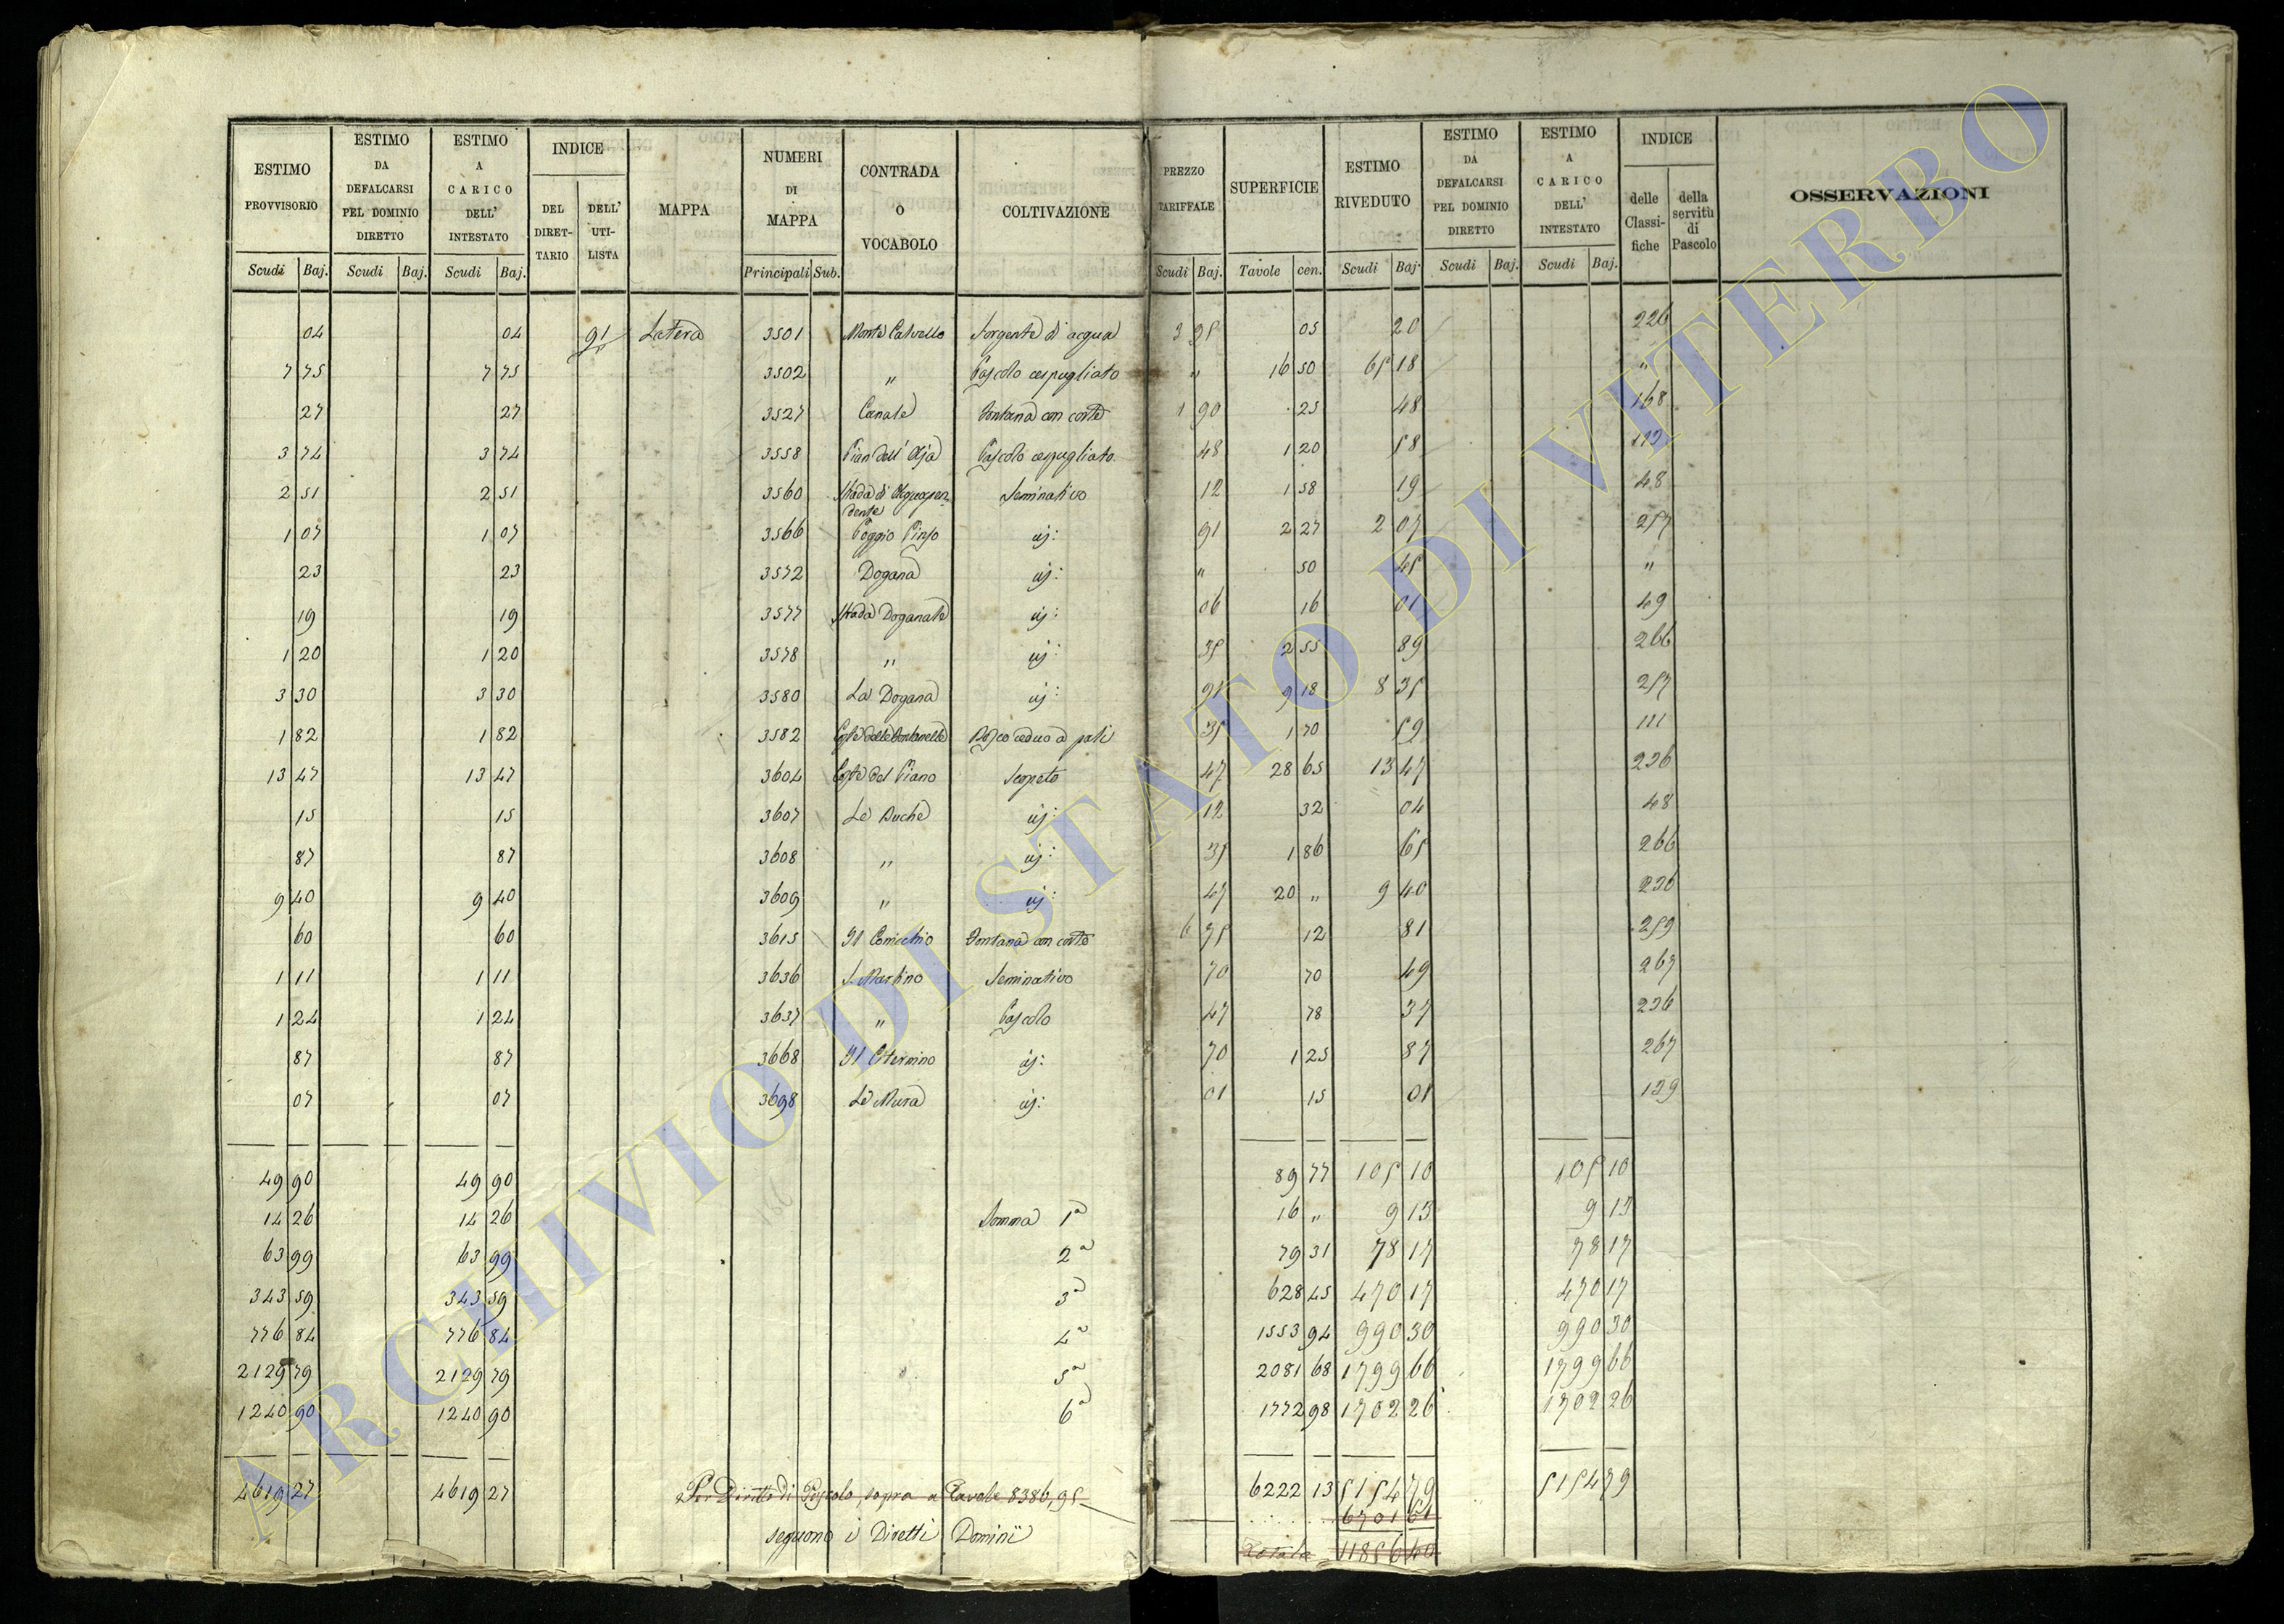 ESTIMO PROVVISORIO | ESTIMO DA DEFALCARSI PEL DOMINIO DIRETTO | ESTIMO A CARICO DELL' INTESTATO | INDICE DEL DIRET-TARIO | DELL' UTI-LISTA | MAPPA | NUMERI DI MAPPA | CONTRADA O VOCABOLO | COLTIVAZIONE | PREZZO TARIFFALE | SUPERFICIE | ESTIMO RIVEDUTO | ESTIMO DA DEFALCARSI PEL DOMINIO DIRETTO | ESTIMO A CARICO DELL' INTESTATO | INDICE delle Classi-fiche | della servitù di Pascolo | OSSERVAZIONI
Scudi Baj. Scudi Baj. Scudi Baj. Principali Sub. Scudi Baj. Tavole cen. Scudi Baj. Scudi Baj. Scudi Baj.
04 04 91 Latera 3501 Monte Calvello Sorgente di acqua 3 95 05 20 226
7 75 7 75 3502 " Pascolo cespugliato " 16 50 65 18 "
27 27 3527 Canale Fontana con corte 1 90 25 48 168
3 74 3 74 3558 Pian dell' Aja Pascolo cespugliato 48 1 20 58 113
2 51 2 51 3560 Strada di Acquapendente Seminativo 12 1 58 19 48
1 07 1 07 3566 Poggio Pinzo id: 91 2 27 2 07 257
23 23 3572 Dogana id: " 50 45 "
19 19 3577 Strada Doganale id: 06 16 01 49
1 20 1 20 3578 " id: 35 2 55 89 266
3 30 3 30 3580 La Dogana id: 91 9 18 8 35 257
1 82 1 82 3582 Coste delle Fontanelle Bosco ceduo a pali 35 1 70 59 111
13 47 13 47 3604 Coste del Piano Sceto 47 28 65 13 47 236
15 15 3607 Le Buche id: 12 32 04 48
87 87 3608 " id: 35 1 86 65 266
9 40 9 40 3609 " id: 47 20 " 9 40 236
60 60 3615 Il Cornicchio Fontana con corte 6 75 12 81 259
1 11 1 11 3636 S. Martino Seminativo 70 70 49 267
1 24 1 24 3637 " Pascolo 47 78 37 236
87 87 3668 Il Citernino id: 70 1 25 87 267
07 07 3698 Le Mura id: 01 15 01 139
49 90 49 90 89 77 105 10 105 10
14 26 14 26 Somma 1ª 16 " 9 13 9 13
63 99 63 99 2ª 79 31 78 17 78 17
343 59 343 59 3ª 628 45 470 17 470 17
776 84 776 84 4ª 1553 94 990 30 990 30
2129 79 2129 79 5ª 2081 68 1799 66 1799 66
1240 90 1240 90 6ª 1772 98 1702 26 1702 26
4619 27 4619 27 Pel Diritto di Pascolo, sopra a Tavole 8386,95 6222 13 5154 79 5154 79
6701 61
seguono i Diretti Dominii Totale 11856 40
ARCHIVIO DI STATO DI VITERBO